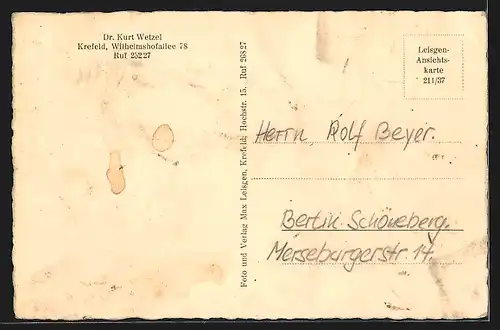 Dr. Kurt Wetzel
Krefeld, Wilhelmshofallee 78
Ruf 25227
Foto und Verlag Max Leisgen, Krefeld, Hochstr. 15. Ruf 26827
Leisgen-
Ansichts-
karte
211/37
Herrn, Rolf Beyer.
Berlin. Schöneberg.
Merseburgerstr. 14.